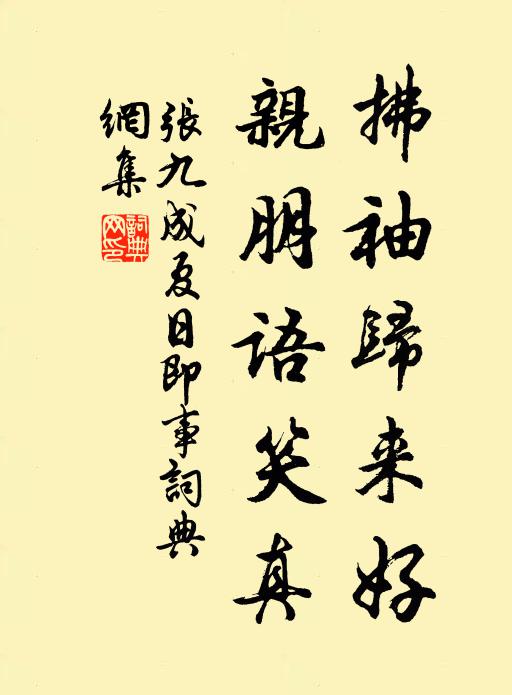 拂袖歸来好
親朋語笑真
張九成夏日即事詞典
網集
詞典網印